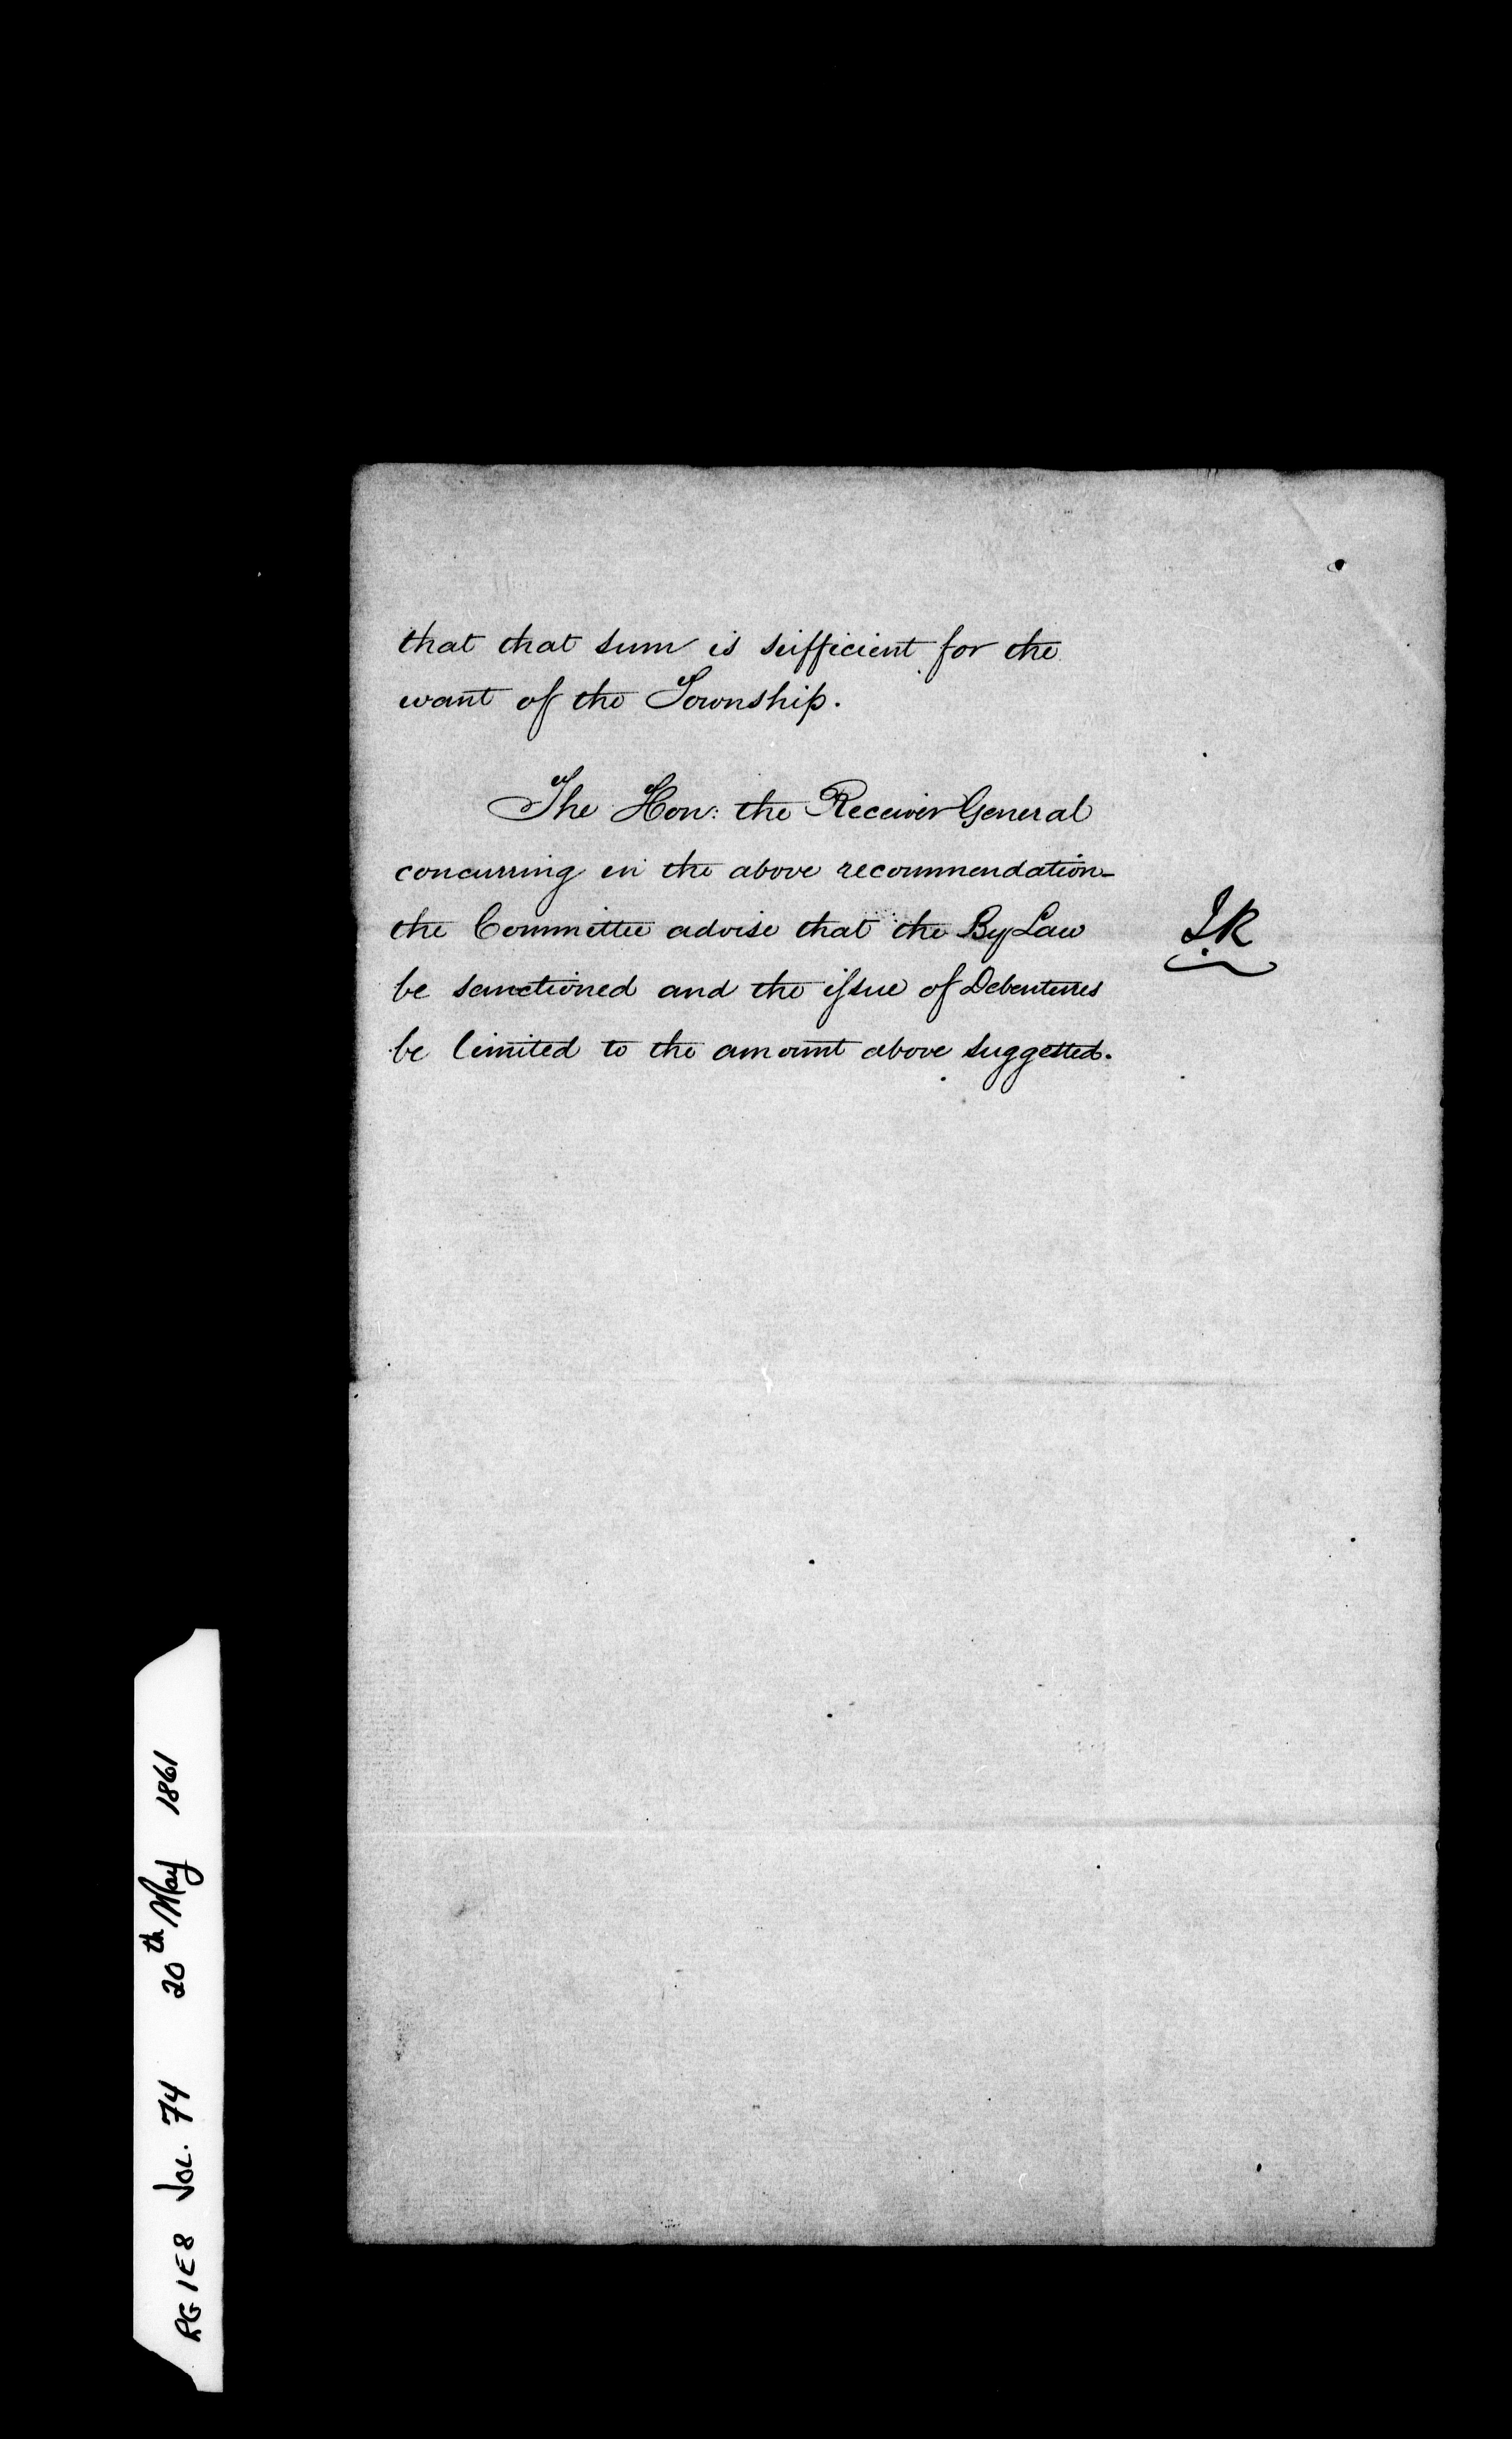 that that sum is sufficient for the
want of the Township.
The Hon: the Receiver General
concurring in the above recommendation
the Committee advise that the By Law
be sanctioned and the issue of Debentures
be limited to the amount above suggested.
J.R
RG 1 E8 VOL. 74 20th May 1861